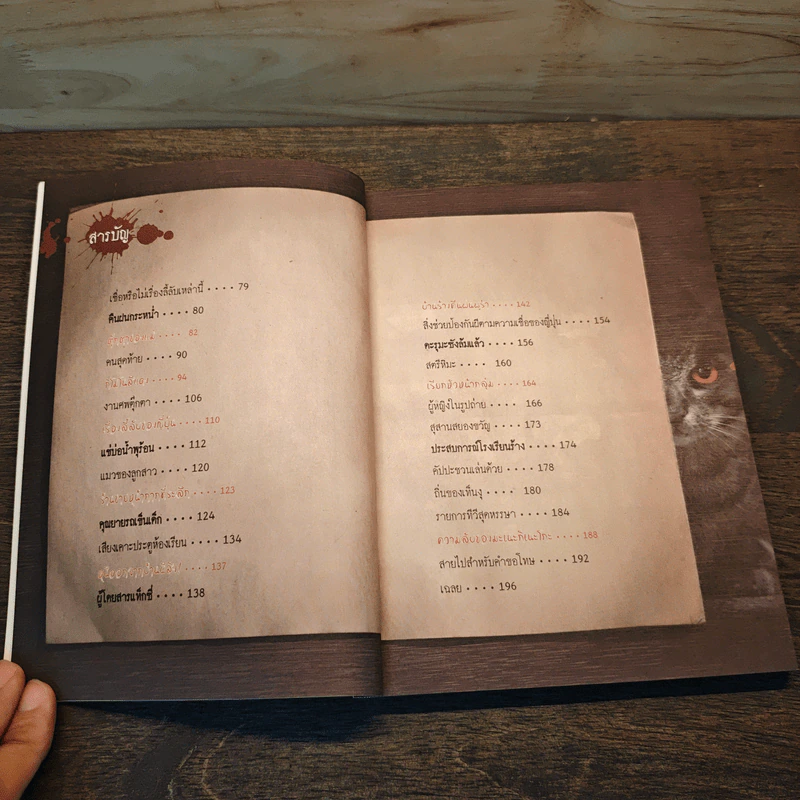 สารบัญ
เชื่อหรือไม่เรื่องลี้ลับเหล่านี้ ···· 79
คืนฝนกระหน่ำ ···· 80
···· 82
คนสุดท้าย ···· 90
···· 94
งานศพตุ๊กตา ···· 106
···· 110
แช่บ่อน้ำพุร้อน ···· 112
แมวของลูกสาว ···· 120
···· 123
คุณยายรถเข็นเด็ก ···· 124
เสียงเคาะประตูห้องเรียน ···· 134
···· 137
ผู้โดยสารแท็กซี่ ···· 138
···· 142
สิ่งช่วยป้องกันผีตามความเชื่อของญี่ปุ่น ···· 154
คะรุมะซังล้มแล้ว ···· 156
สตรีหิมะ ···· 160
···· 164
ผู้หญิงในรูปถ่าย ···· 166
สุสานสยองขวัญ ···· 173
ประสบการณ์โรงเรียนร้าง ···· 174
คัปปะชวนเล่นด้วย ···· 178
ถิ่นของเท็นงุ ···· 180
รายการทีวีสุดหรรษา ···· 184
···· 188
สายไปสำหรับคำขอโทษ ···· 192
เฉลย ···· 196